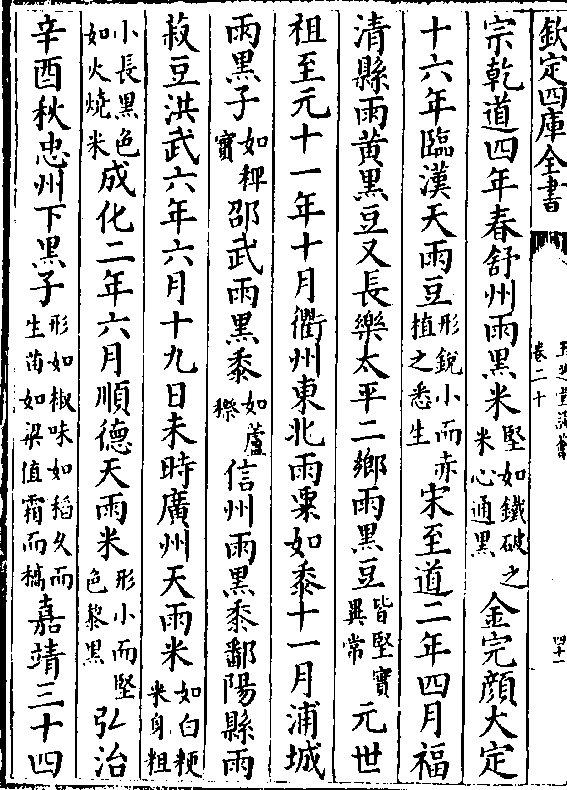 欽定四庫全書
卷二十
四十一
宗乾道四年春舒州雨黑米堅如鐵破之米心通黑金完顔大定
十六年臨漢天雨豆形銳小而赤植之悉生宋至道二年四月福
清縣雨黄黑豆又長樂太平二鄉雨黑豆皆堅實異常元世
祖至元十一年十月衢州東北雨粟如黍十一月浦城
雨黑子如稗實邵武雨黑黍如蘆穄信州雨黑黍鄱陽縣雨
菽豆洪武六年六月十九日未時廣州天雨米如白粳米身粗
小長黑色如火燒米成化二年六月順德天雨米形小而堅色黎黑弘治
辛酉秋忠州下黑子形如椒味如稻久而生苗如梁值霜而槁嘉靖三十四